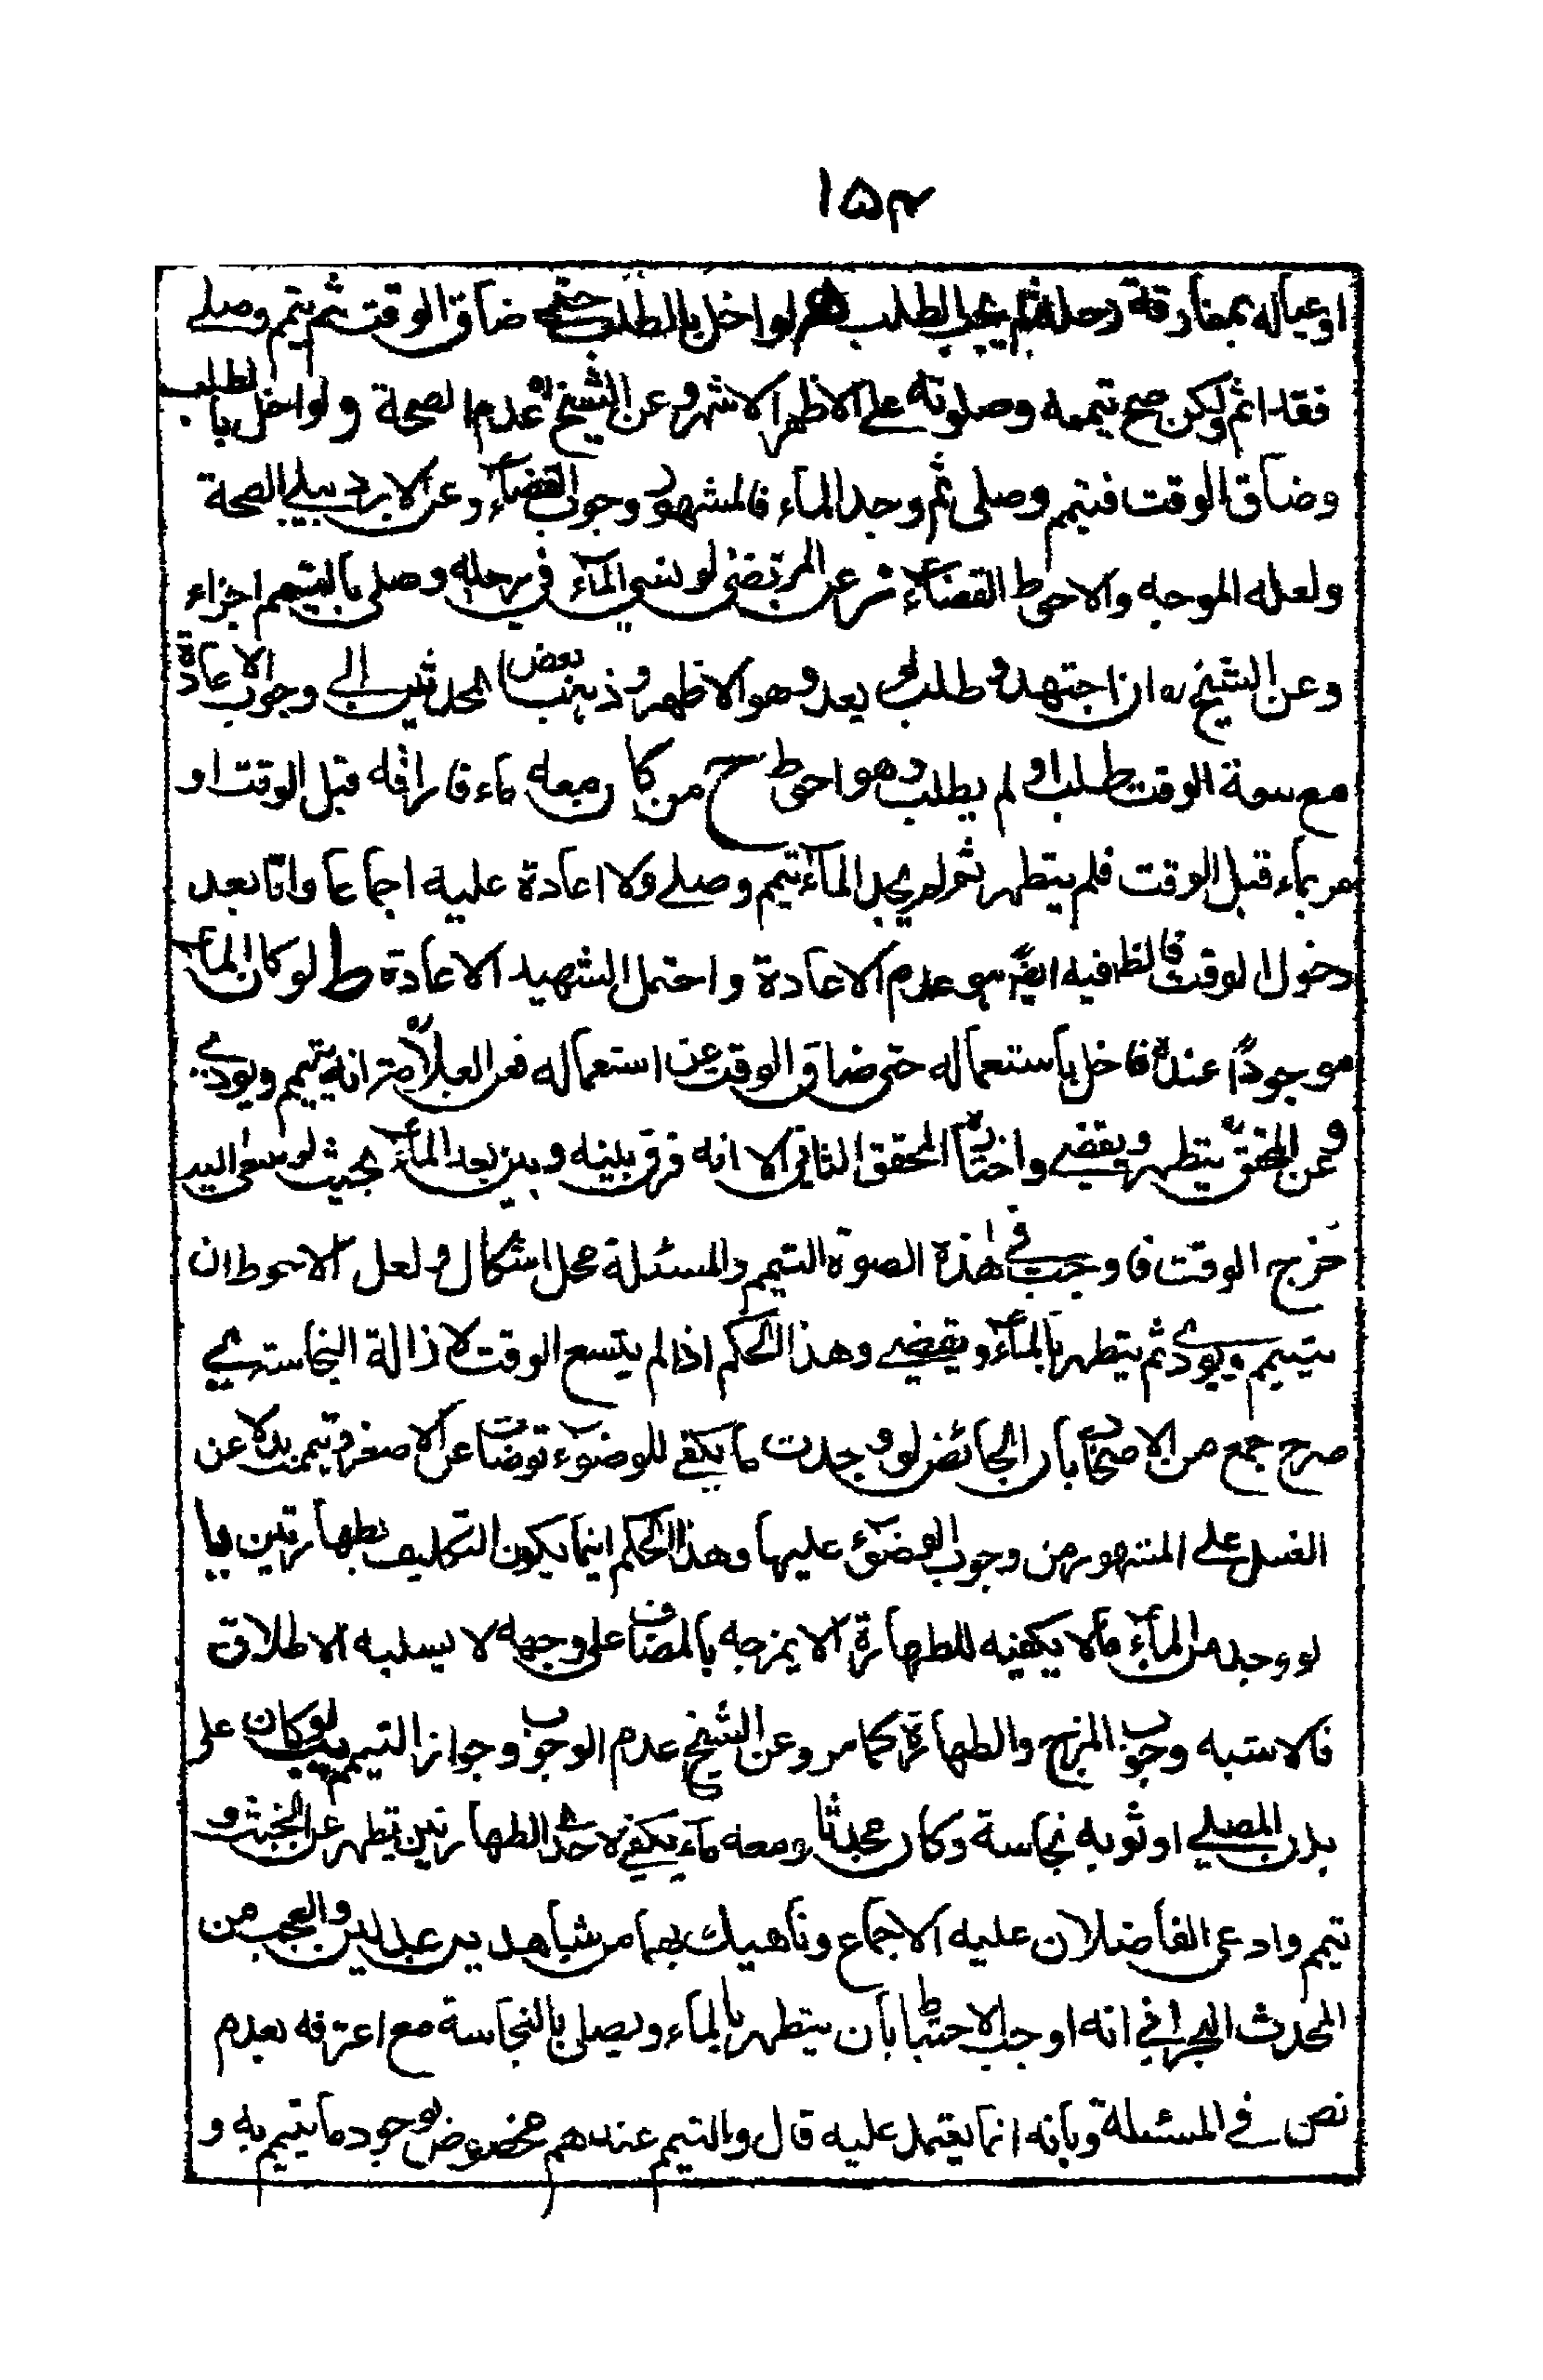 ١٥٣
او عياله بمفارقة رحله لم يجب الطلب لو اخل بالطلب حتى ضاق الوقت ثم تيمم وصلى
فقد اثم ولكن صح تيممه وصلوته على الاظهر الاشهر وعن الشيخ ره عدم الصحة ولو اخل بالطلب
وضاق الوقت فتيمم وصلى ثم وجد الماء فالمشهور وجوب القضاء وعن الاردبيلي الصحة
ولعله الموجه والاحوط القضاء عن المرتضى لو نسي الماء في رحله وصلى بالتيمم اجزاء
وعن الشيخ ره ان اجتهد وطلب لم يعد وهو الاظهر وذهب بعض المحدثين الى وجوب الاعادة
مع سعة الوقت طلب او لم يطلب وهو احوط ح من كان معه ماء فاراقه قبل الوقت او
مر بماء قبل الوقت فلم يتطهر ثم لم يجد الماء تيمم وصلى ولا اعادة عليه اجماعا واما بعد
دخول الوقت فالظ فيه ايضً هو عدم الاعادة واحتمل الشهيد الاعادة ط لو كان الماء
موجودًا عنده فاخل باستعماله حتى ضاق الوقت عن استعماله فعن العلامة ره انه يتيمم ويؤدي
وعن المحقق ره يتطهر ويقضي واختاره المحقق الثاني الا انه فرق بينه وبين بعد الماء بحيث لو سعى اليه
خرج الوقت فاوجب في هذه الصورة التيمم والمسئلة محل اشكال ولعل الاحوط ان
يتيمم ويؤدى ثم يتطهر بالماء ويقضي وهذا الحكم اذا لم يتسع الوقت لازالة النجاسة ى
صرح جمع من الاصحاب بان الحائض لو وجدت ما يكفي للوضوء توضات عن الاصغر وتيمم بدلا عن
الغسل على المشهور من وجوب الوضوء عليها وهذا الحكم انما يكون التكليف بطهارتين يا
لو وجد من الماء ما لا يكفيه للطهارة الا يمزجه بالمضاف على وجه لا يسلبه الاطلاق
فالاشبه وجوب المزج والطهارة كما مر وعن الشيخ عدم الوجوب وجواز التيمم يب لو كان على
بدن المصلي او ثوبه نجاسة وكان محدثا ومعه ماء يكفي لاحدى الطهارتين تطهر عن الخبث و
تيمم وادعى الفاضلان عليه الاجماع وناهيك بهما من شاهدين عدلين والعجب من
المحدث البحراني انه اوجب الاحتياط بان يتطهر بالماء ويصلي بالنجاسة مع اعترافه بعدم
نص في المسئلة وبانه انما يعتمل عليه قال والتيمم عندهم مخصوص بوجود ما يتيمم به و